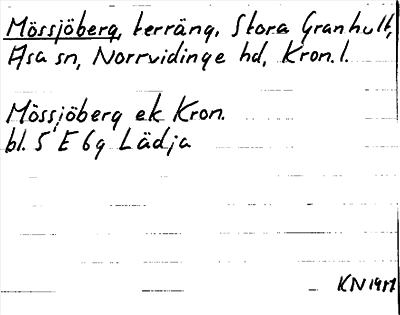 Mössjöberg, terräng, Stora Granhult,
Asa sn, Norrvidinge hd, Kron. l.
Mössjöberg ek Kron.
bl. 5 E 6g Lädja